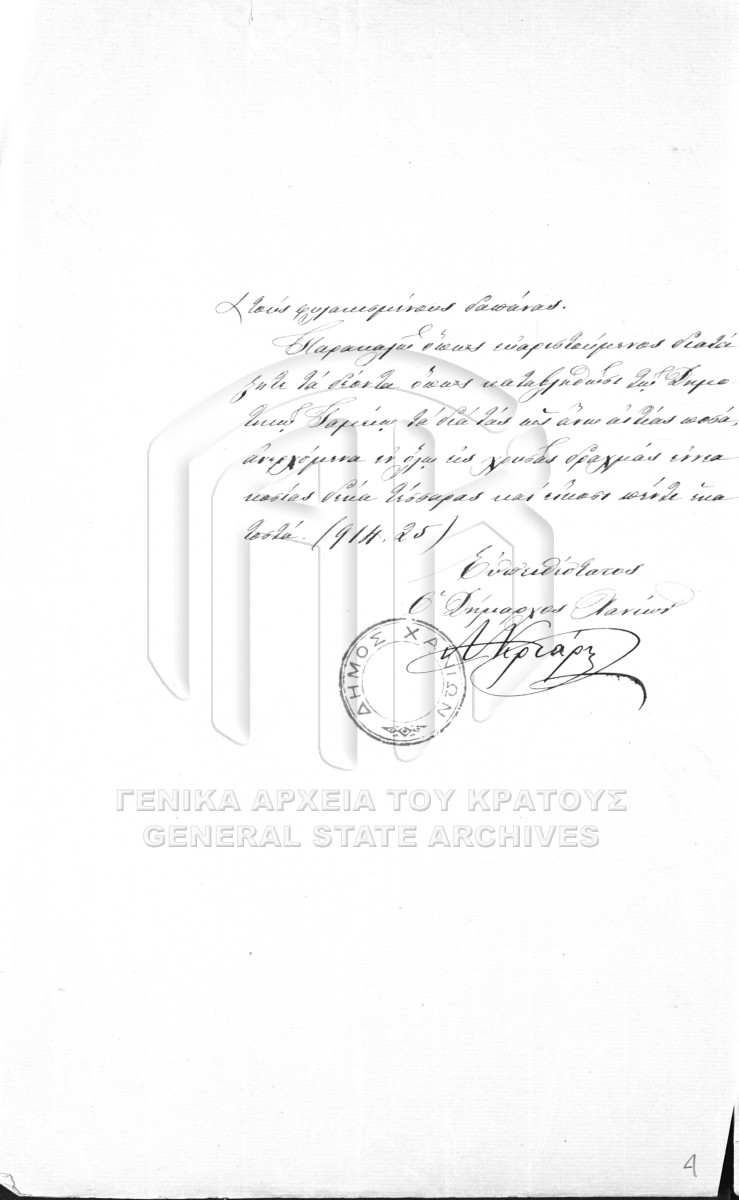 τοὺς φυλακισμένους δαπάνας.
Παρακαλῶ ὅπως εὐαρεστούμενος διατά
ξητε τὰ δέοντα ὅπως καταβληθῶσι τῷ Δημο-
τικῷ Ταμείῳ τὰ διὰ τὰς ὡς ἄνω αἰτίας ποσά,
ἀνερχόμενα ἐν ὅλῳ εἰς χρυσᾶς δραχμὰς ἐννεα
κοσίας δέκα τέσσαρας καὶ εἴκοσι πέντε ἑκα
τοστά. (914.25)
Εὐπειθέστατος
Ὁ Δήμαρχος Χανίων
ΔΗΜΟΣ ΧΑΝΙΩΝ
ΓΕΝΙΚΑ ΑΡΧΕΙΑ ΤΟΥ ΚΡΑΤΟΥΣ
GENERAL STATE ARCHIVES
4